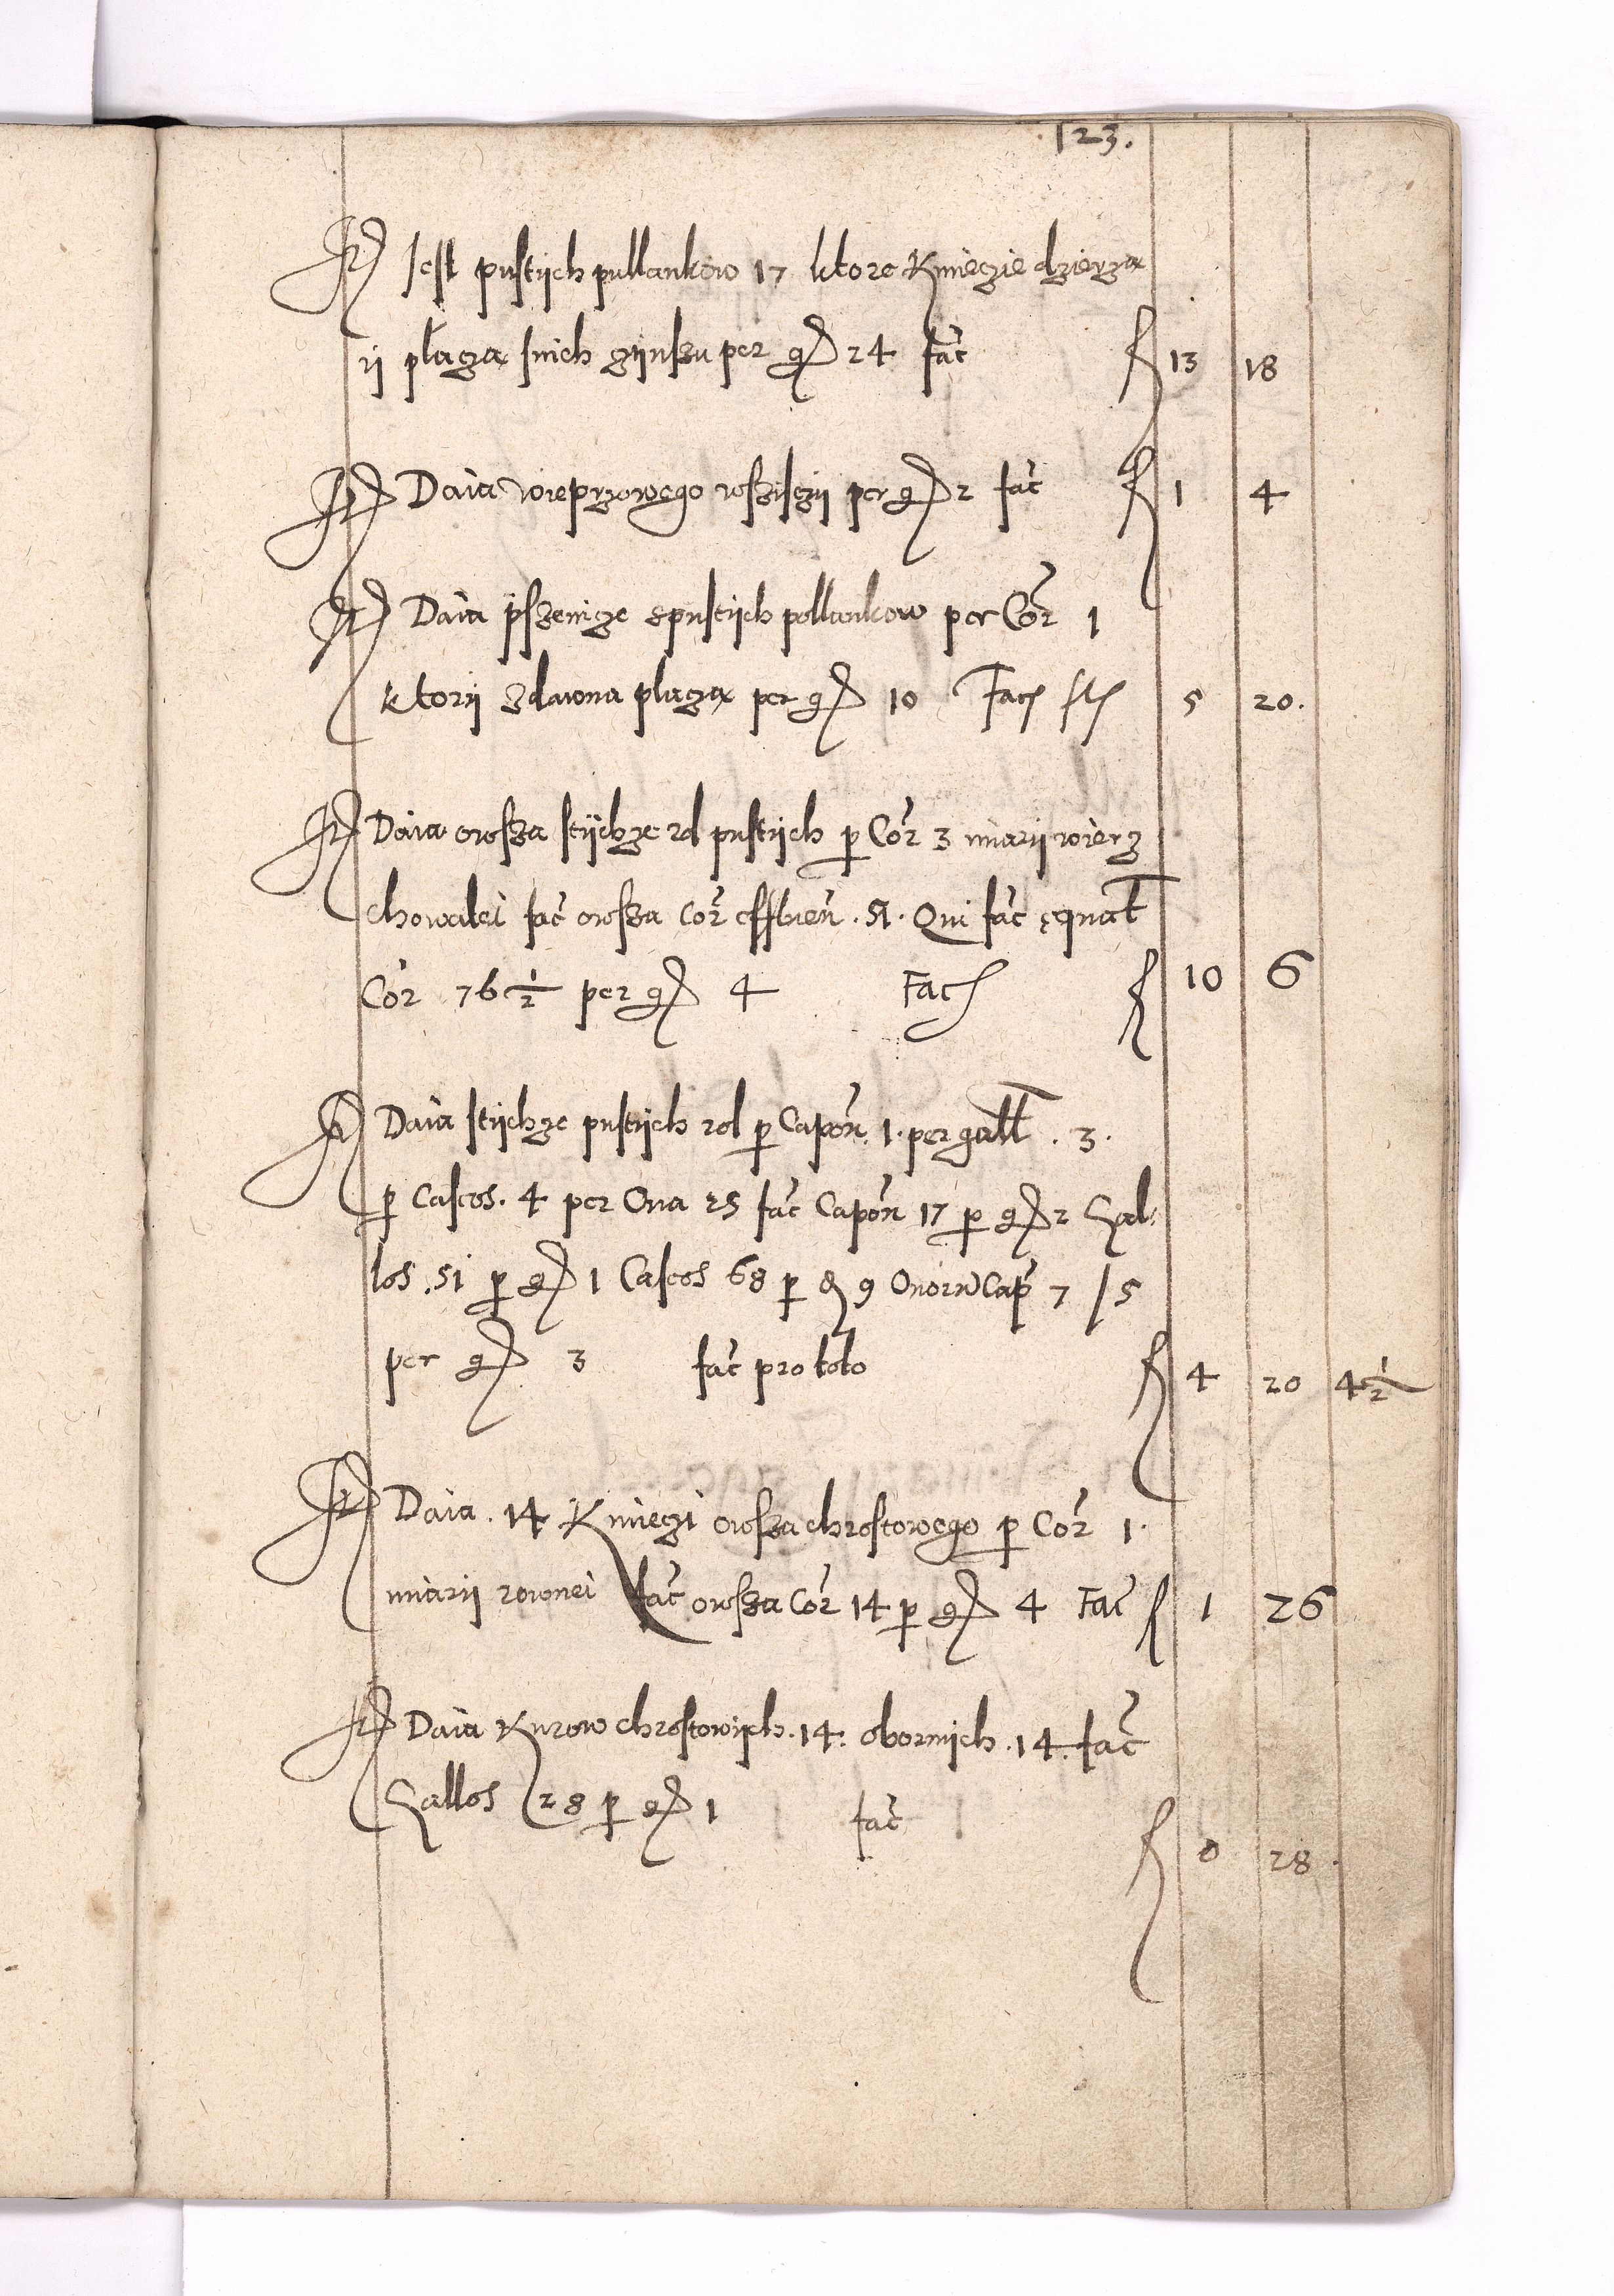 123.
It Jest pustÿch pullankow 17 ktore Kmieczie dzierza
ÿ płaczą snich czÿnszu per g 24 fac f 13 18
It Daia wieprzowego wszÿsczÿ per g 2 fac f 1 4
It Daia pszenicze spustÿch pollankow per Cor 1
ktorÿ zdawna placzą per g 10 Fac fl 5 20.
It Daia owsza stÿchze rol pustÿch p Cor 3 miarÿ wierz
chowatei fac owsza Cor 51. Qui fac equat
Cor 76 1/2 per g 4 Fac f 10 6
It Daia stÿchze pustÿch rol p Capon 1. per gall. 3.
p Caseos. 4 per Ova 25 fac Capon 17 p g 2 Gal
los .51 p g 1 Caseos 68 p d 9 Ovorum Cap 7 / 5
per g 3 fac pro toto f 4 20 4 1/2
It Daia .14 Kmieczi owsza chrostowego p Cor 1.
miarÿ rownei fac owsza Cor 14 p g 4 Fac f 1 26
It Daia Kurow chrostowÿch .14. obornÿch .14. fac
Gallos 28 p g 1 fac f 0 28.